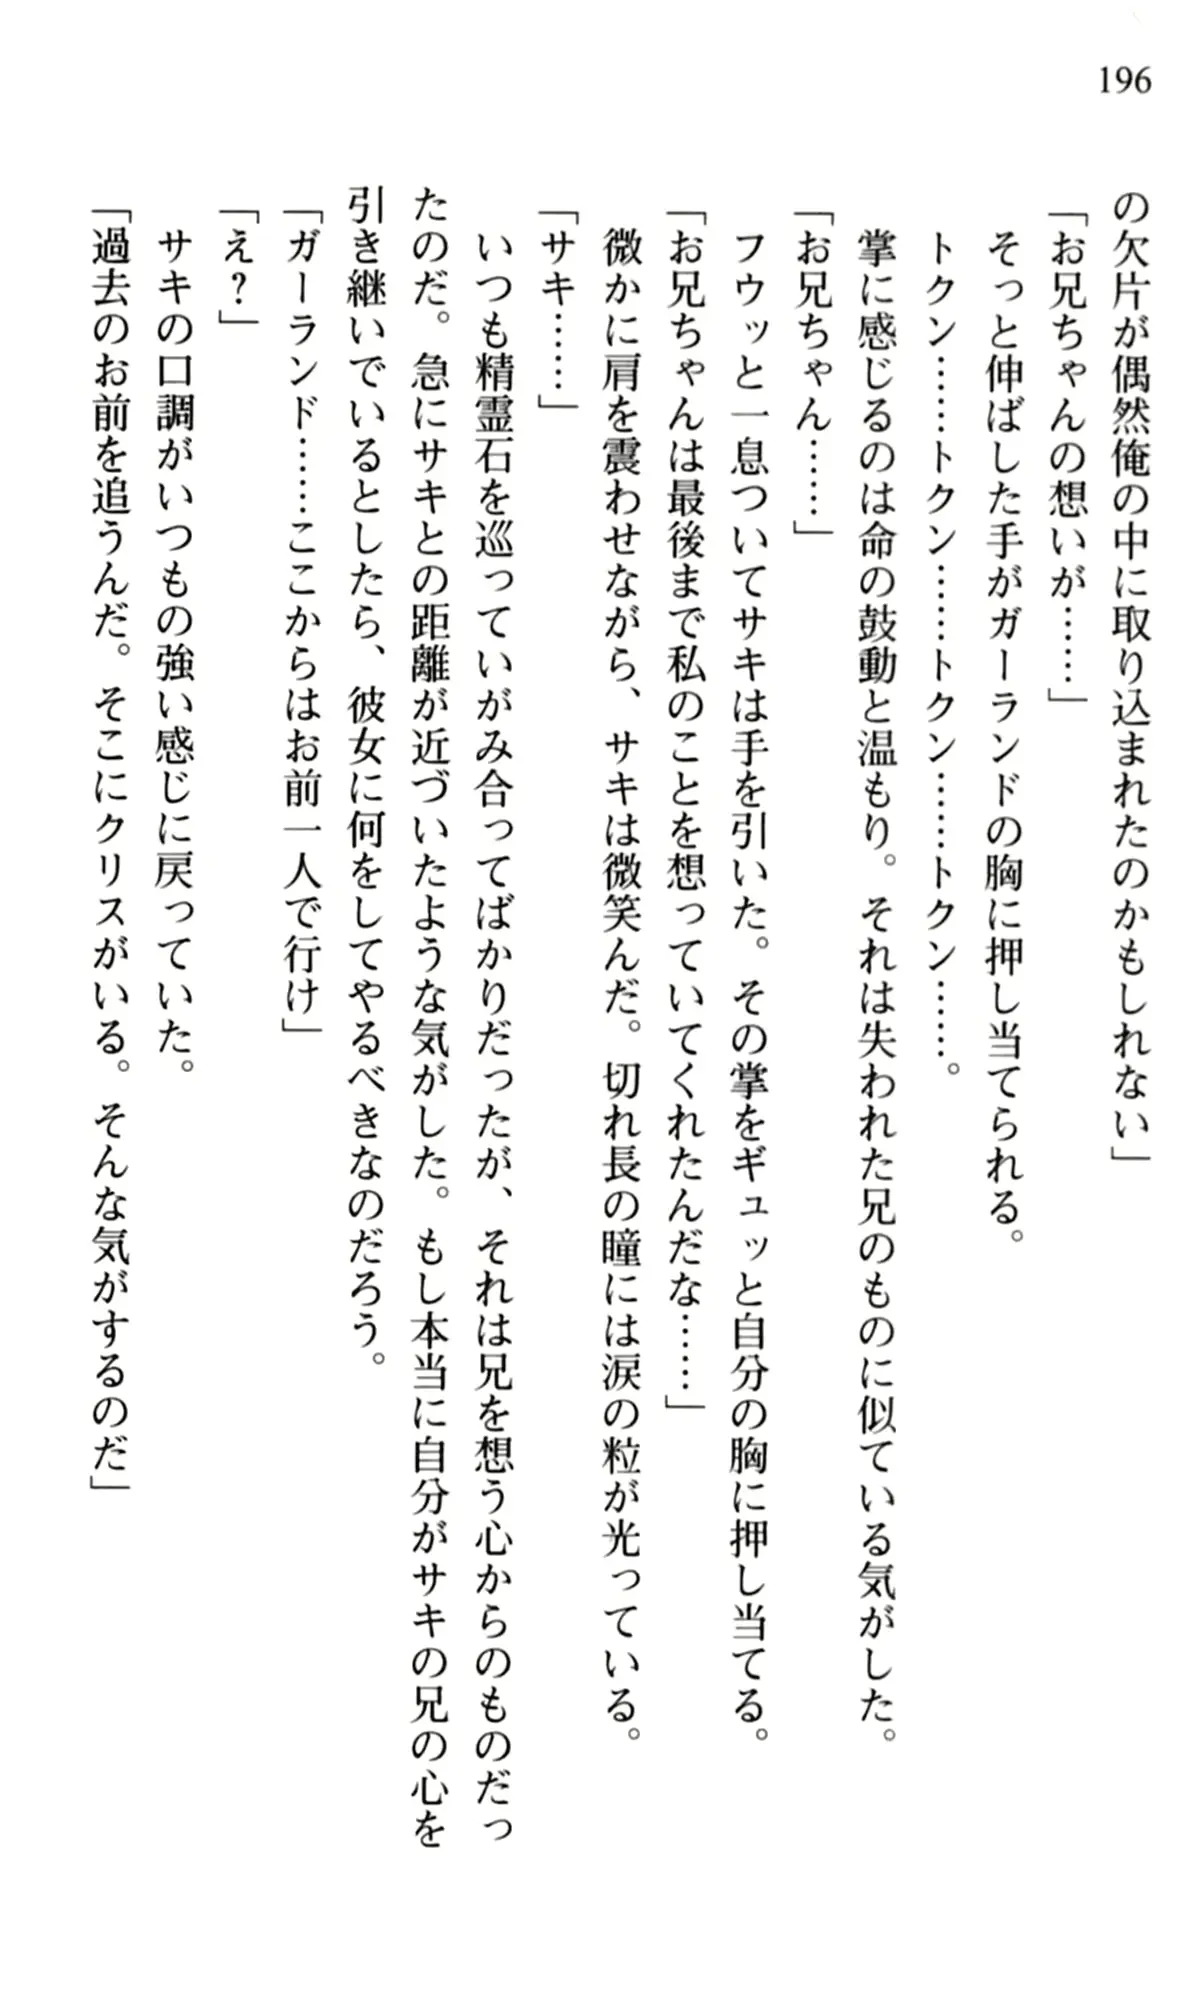 196
の欠片が偶然俺の中に取り込まれたのかもしれない」
「お兄ちゃんの想いが……」
そっと伸ばした手がガーランドの胸に押し当てられる。
トクン……トクン……トクン……トクン……。
掌に感じるのは命の鼓動と温もり。それは失われた兄のものに似ている気がした。
「お兄ちゃん……」
フウッと一息ついてサキは手を引いた。その掌をギュッと自分の胸に押し当てる。
「お兄ちゃんは最後まで私のことを想っていてくれたんだな……」
微かに肩を震わせながら、サキは微笑んだ。切れ長の瞳には涙の粒が光っている。
「サキ……」
いつも精霊石を巡っていがみ合ってばかりだったが、それは兄を想う心からのものだっ
たのだ。急にサキとの距離が近づいたような気がした。もし本当に自分がサキの兄の心を
引き継いでいるとしたら、彼女に何をしてやるべきなのだろう。
「ガーランド……ここからはお前一人で行け」
「え?」
サキの口調がいつもの強い感じに戻っていた。
「過去のお前を追うんだ。そこにクリスがいる。そんな気がするのだ」